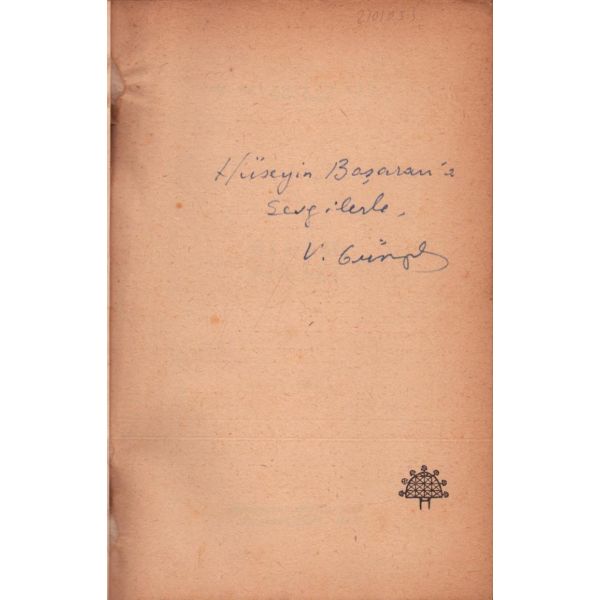 2101233
Hüseyin Başaran'a
Sevgilerle,
V. Günyol